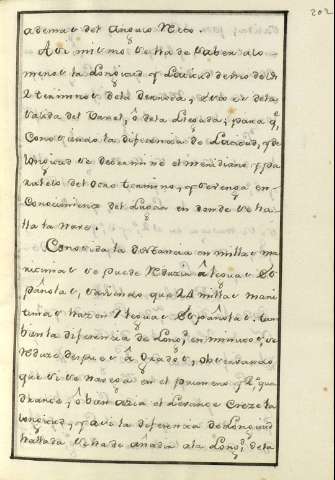 202
ademas del Angulo Recto.
Asi mismo se ha de saber alo
menos la Longitud y Latitud de uno delos
2 terminos dela Derrota, y sea es dela
Salida del Vaxel, ô dela Llegada; para q.
Conociendo la diferencia de Latitud, y de
Longitud se determine el meridiano y pa
ralelo del otro termino, y se venga en
Conocimiento del Lugar en donde se ha
lla la Nave.
Conocida la distancia en millas ma
ritimas se puede Reducir â leguas Es
pañolas, sabiendo que 24 millas mari
timas hazen 7 leguas Españolas. tam
bien la diferencia de Long. en minutos, se
Reduze despues â grados, observando
que si se navega en el primero y 2.º qua
drante, ô ban azia el Levante Creze la
Longitud, y assi la diferencia de Longitud
hallada se ha de añadir ala Long. dela